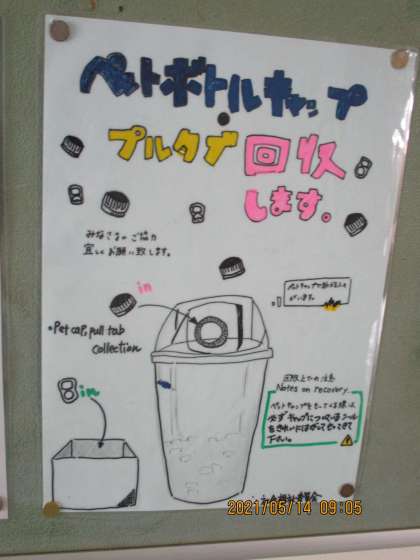 ペットボトルキャップ
・
プルタブ 回収
します。
みなさまの ご協力
宜しく お願い致します。
in
•Pet cap, pull tab
collection
in
回収上での注意
Notes on recovery
ペットキャップをもってくる際は、
必ずキャップについているシール
をきれいにはがしてもってきて
下さい。
2021/05/14 09:05